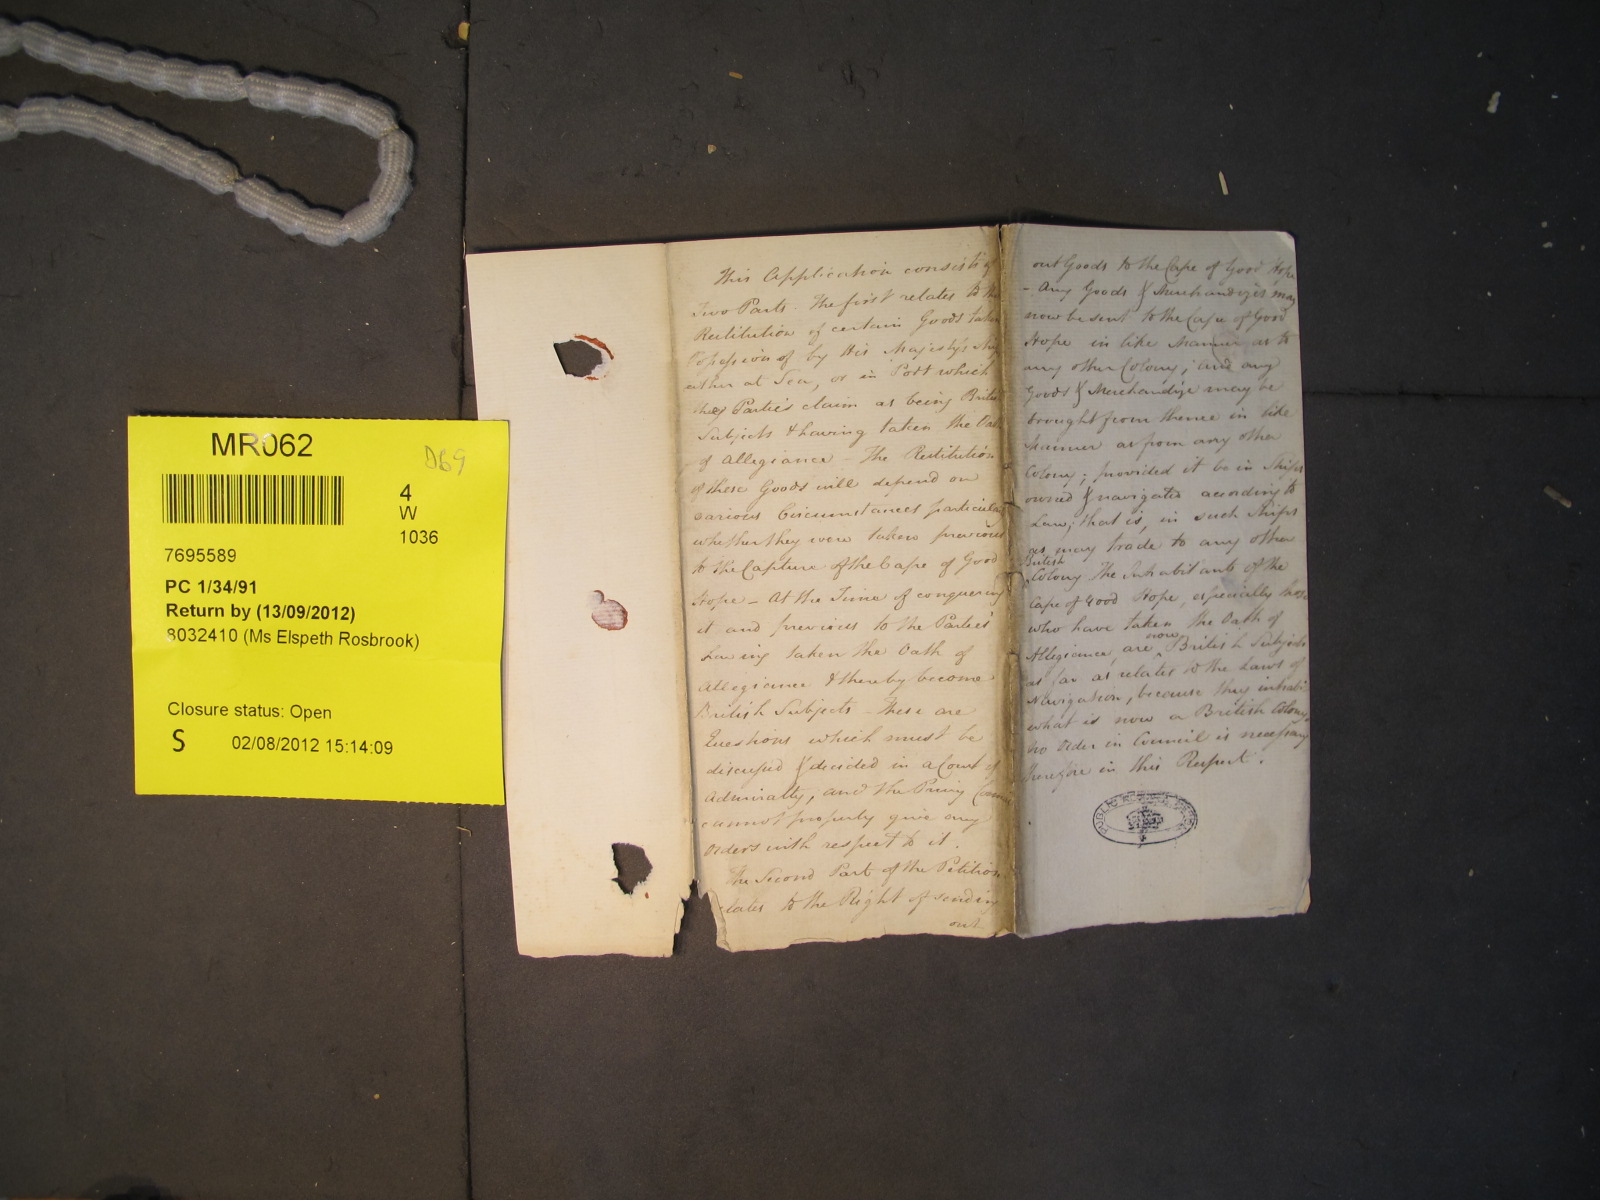 MR062
D69
4
W
1036
7695589
PC 1/34/91
Return by (13/09/2012)
8032410 (Ms Elspeth Rosbrook)
Closure status: Open
S 02/08/2012 15:14:09
This Application consists of
Two Parts. The first relates to the
Restitution of certain Goods taken
Possession of by His Majesty's Ship
either at Sea, or in Port which
they Parties claim as being British
Subjects & having taken the Oath
of Allegiance - The Restitution
of these Goods will depend on
various Circumstances particularly
whether they were taken previous
to the Capture of the Cape of Good
Hope - At the Time of conquering
it and previous to the Parties
having taken the Oath of
Allegiance & thereby become
British Subjects - These are
Questions which must be
discussed & decided in a Court of
Admiralty, and the Privy Council
cannot properly give any
Orders with respect to it.
The Second Part of the Petition
relates to the Right of sending
out
out Goods to the Cape of Good Hope
- Any Goods & Merchandizes may
now be sent to the Cape of Good
Hope in like Manner as to
any other Colony; and any
Goods & Merchandize may be
brought from thence in like
Manner as from any other
Colony; provided it be in Ships
owned & navigated according to
Law; that is, in such Ships
as may trade to any other
British
Colony. The Inhabitants of the
Cape of Good Hope, especially those
who have taken the Oath of
now
Allegiance, are British Subjects
as far as relates to the Laws of
Navigation, because they inhabit
what is now a British Colony,
no Order in Council is necessary
therefore in this Respect.
PUBLIC RECORD OFFICE